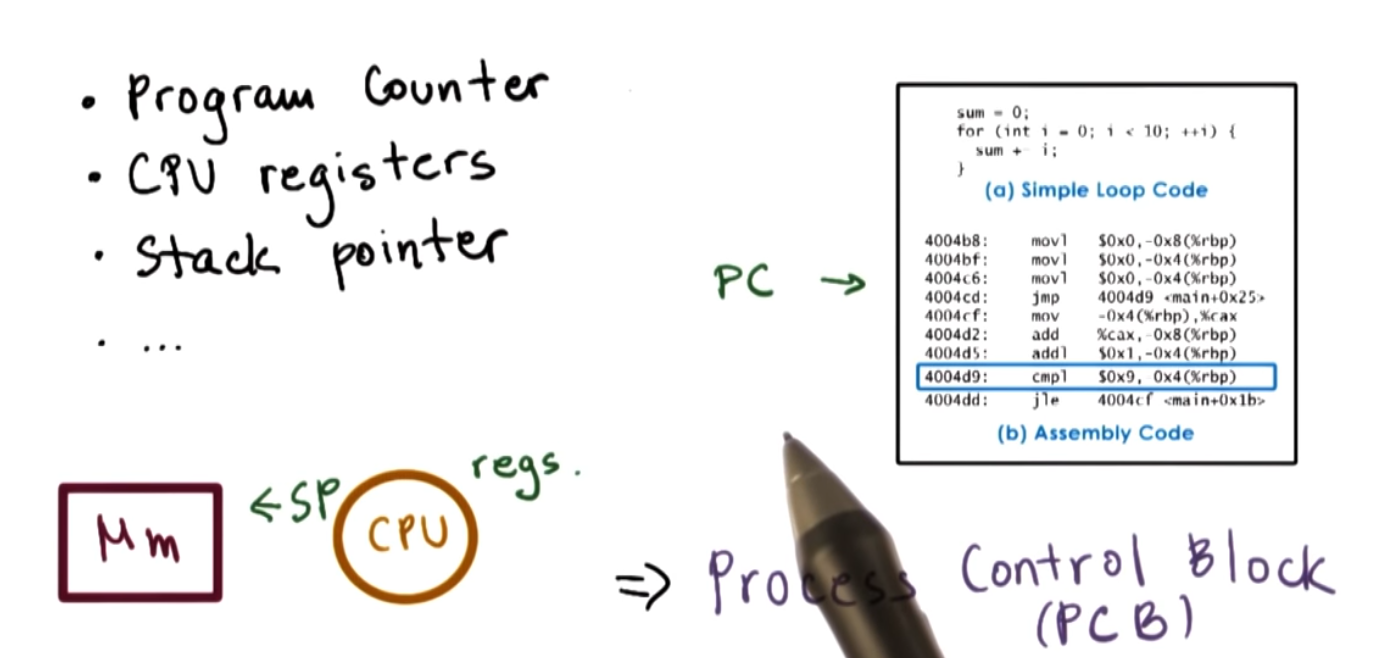 • Program Counter
• CPU registers
• Stack pointer
• ...
sum = 0;
for (int i = 0; i < 10; ++i) {
sum + i;
}
(a) Simple Loop Code
4004b8: movl $0x0,-0x8(%rbp)
4004bf: movl $0x0,-0x4(%rbp)
4004c6: movl $0x0,-0x4(%rbp)
4004cd: jmp 4004d9 <main+0x25>
4004cf: mov -0x4(%rbp),%eax
4004d2: add %eax,-0x8(%rbp)
4004d5: addl $0x1,-0x4(%rbp)
4004d9: cmpl $0x9, 0x4(%rbp)
4004dd: jle 4004cf <main+0x1b>
(b) Assembly Code
PC →
Mm
← SP
CPU
regs.
⇒ Process Control Block
(PCB)